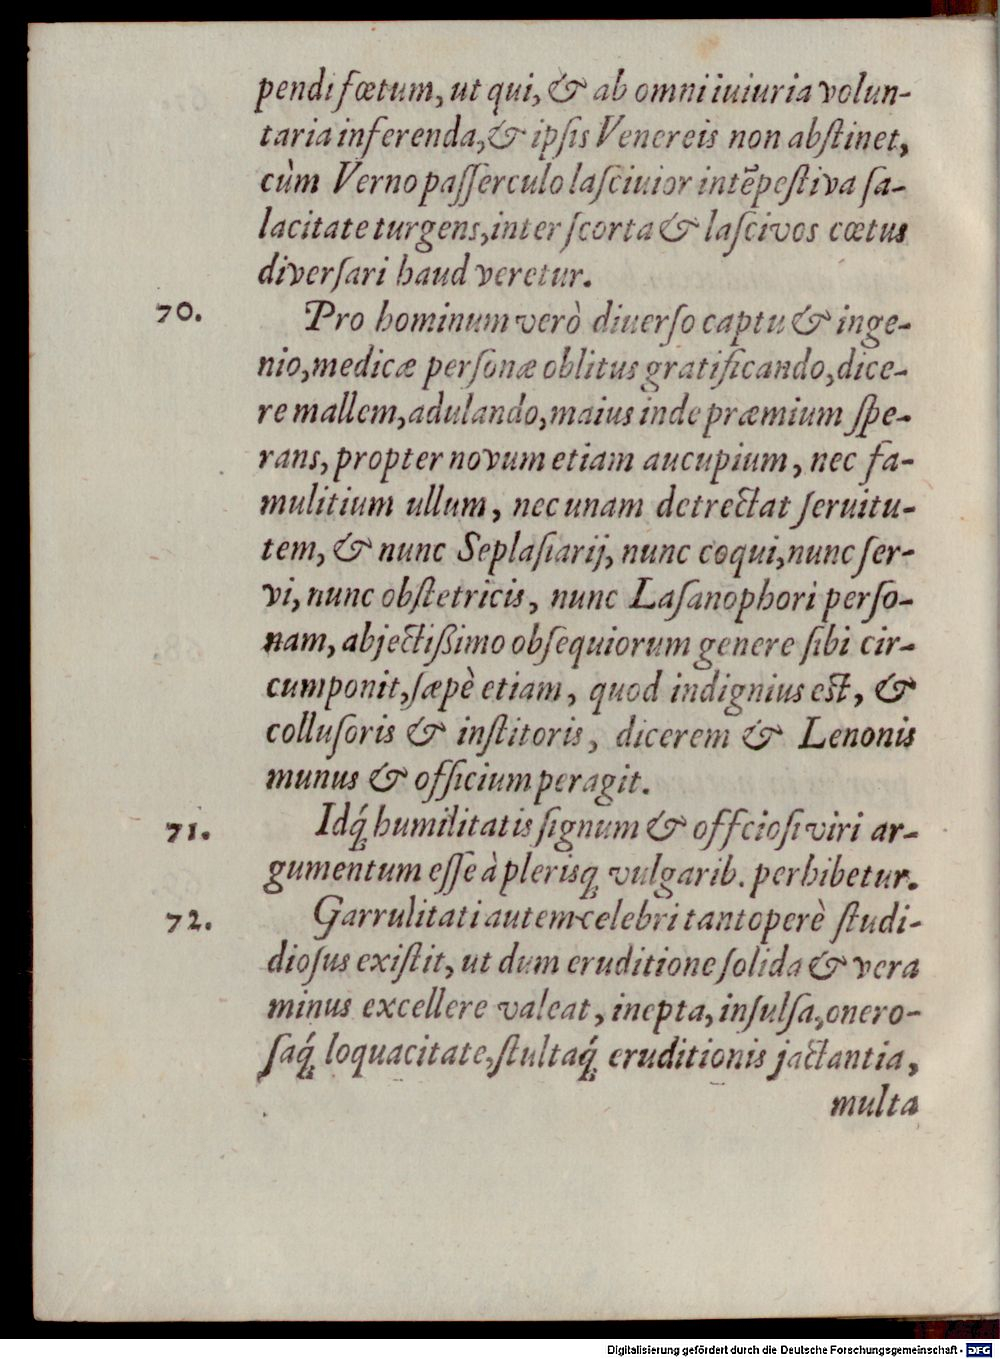 pendi fœtum, ut qui, & ab omni iuiuria volun-
taria inferenda, & ipſis Venereis non abſtinet,
cùm Verno paſſerculo laſciuior intẽpeſtiva ſa-
lacitate turgens, inter ſcorta & laſcivos cœtus
diverſari haud veretur.
70. Pro hominum verò diuerſo captu & inge-
nio, medicæ perſonæ oblitus gratificando, dice-
re mallem, adulando, maius inde præmium ſpe-
rans, propter novum etiam aucupium, nec fa-
mulitium ullum, nec unam detrectat ſeruitu-
tem, & nunc Seplaſiarij, nunc coqui, nunc ſer-
vi, nunc obſtetricis, nunc Laſanophori perſo-
nam, abjectißimo obſequiorum genere ſibi cir-
cumponit, ſæpè etiam, quod indignius eſt, &
colluſoris & inſtitoris, dicerem & Lenonis
munus & officium peragit.
71. Idq́; humilitatis ſignum & offcioſi viri ar-
gumentum eſſe à plerisq; vulgarib. perhibetur.
72. Garrulitati autem celebri tantoperè ſtudi-
dioſus exiſtit, ut dum eruditione ſolida & vera
minus excellere valeat, inepta, inſulſa, onero-
ſaq́; loquacitate, ſtultaq́; eruditionis jactantia,
multa
Digitalisierung gefördert durch die Deutsche Forschungsgemeinschaft - DFG